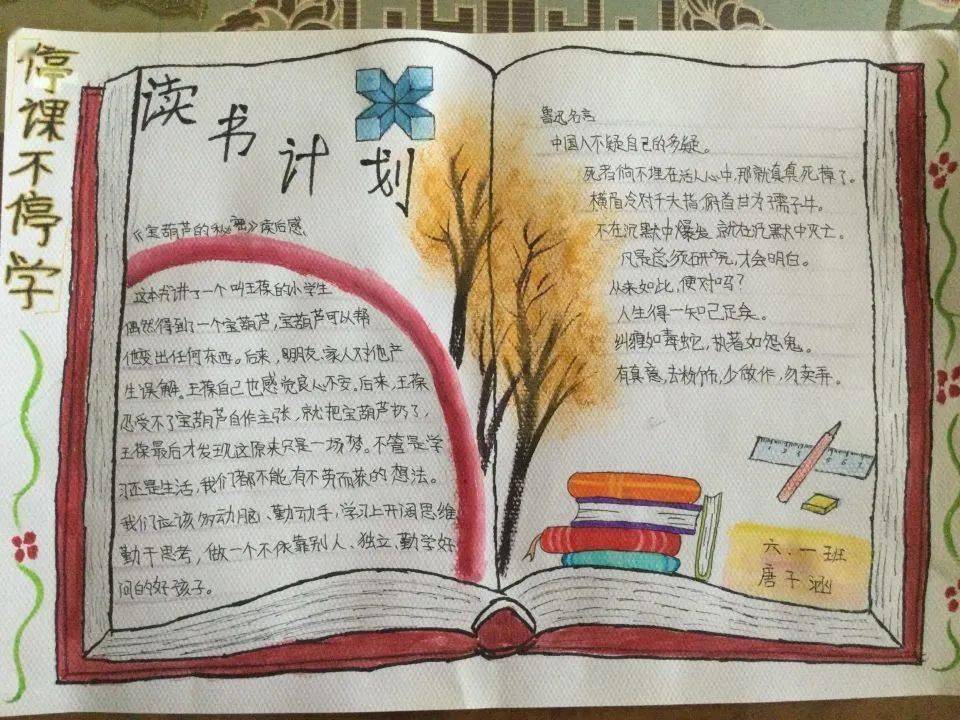 停课不停学
读书计划
《宝葫芦的秘密》读后感
这本书讲了一个叫王葆的小学生
偶然得到了一个宝葫芦,宝葫芦可以帮
他变出任何东西。后来,朋友、家人对他产
生误解。王葆自己也感觉良心不安,后来,王葆
忍受不了宝葫芦自作主张,就把宝葫芦扔了,
王葆最后才发现这原来只是一场梦。不管是学
习还是生活,我们都不能有不劳而获的想法。
我们应该多动脑、勤动手,学习上开阔思维
勤于思考,做一个不依靠别人、独立、勤学好
问的好孩子。
鲁迅名言
中国人不疑自己的多疑。
死者倘不埋在活人心中,那就真真死掉了。
横眉冷对千夫指,俯首甘为孺子牛。
不在沉默中爆发,就在沉默中灭亡。
凡是总须研究,才会明白。
从来如此,便对吗?
人生得一知己足矣。
纠缠如毒蛇,执著如怨鬼。
有真意,去粉饰,少做作,勿卖弄。
六.一班
唐子涵